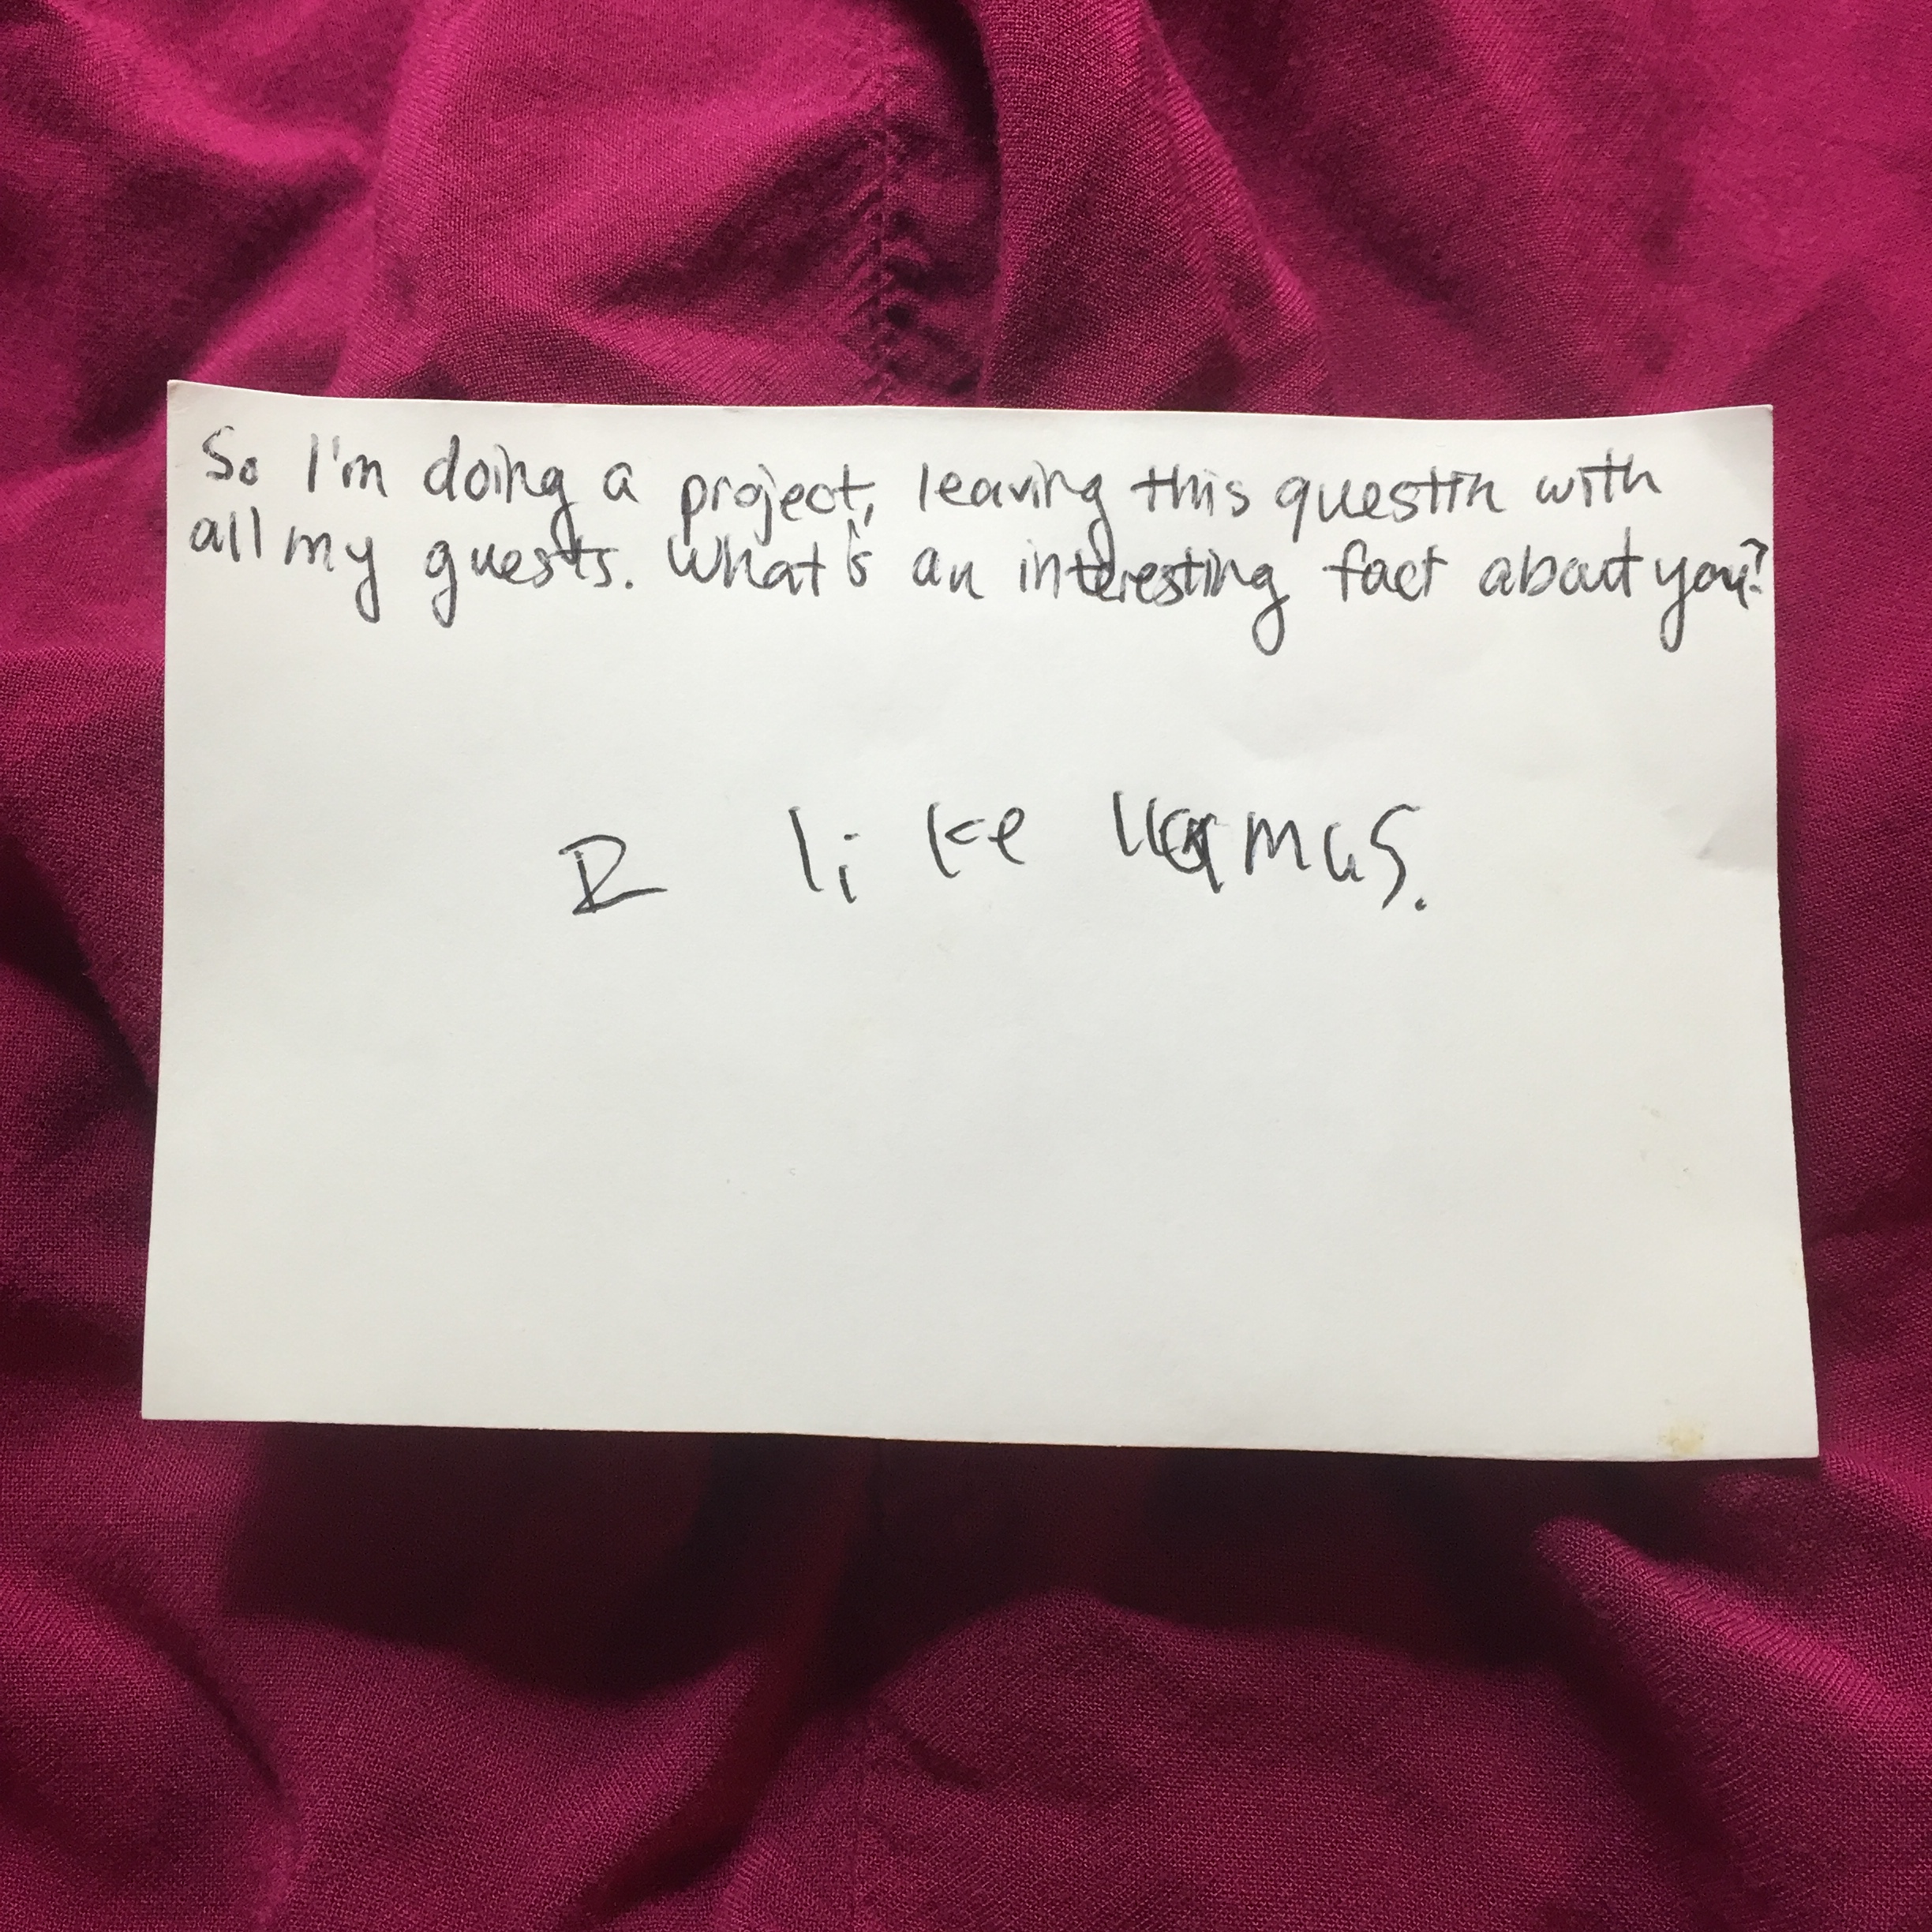 So I'm doing a project, leaving this question with
all my guests. What's an interesting fact about you?
I like llamas.